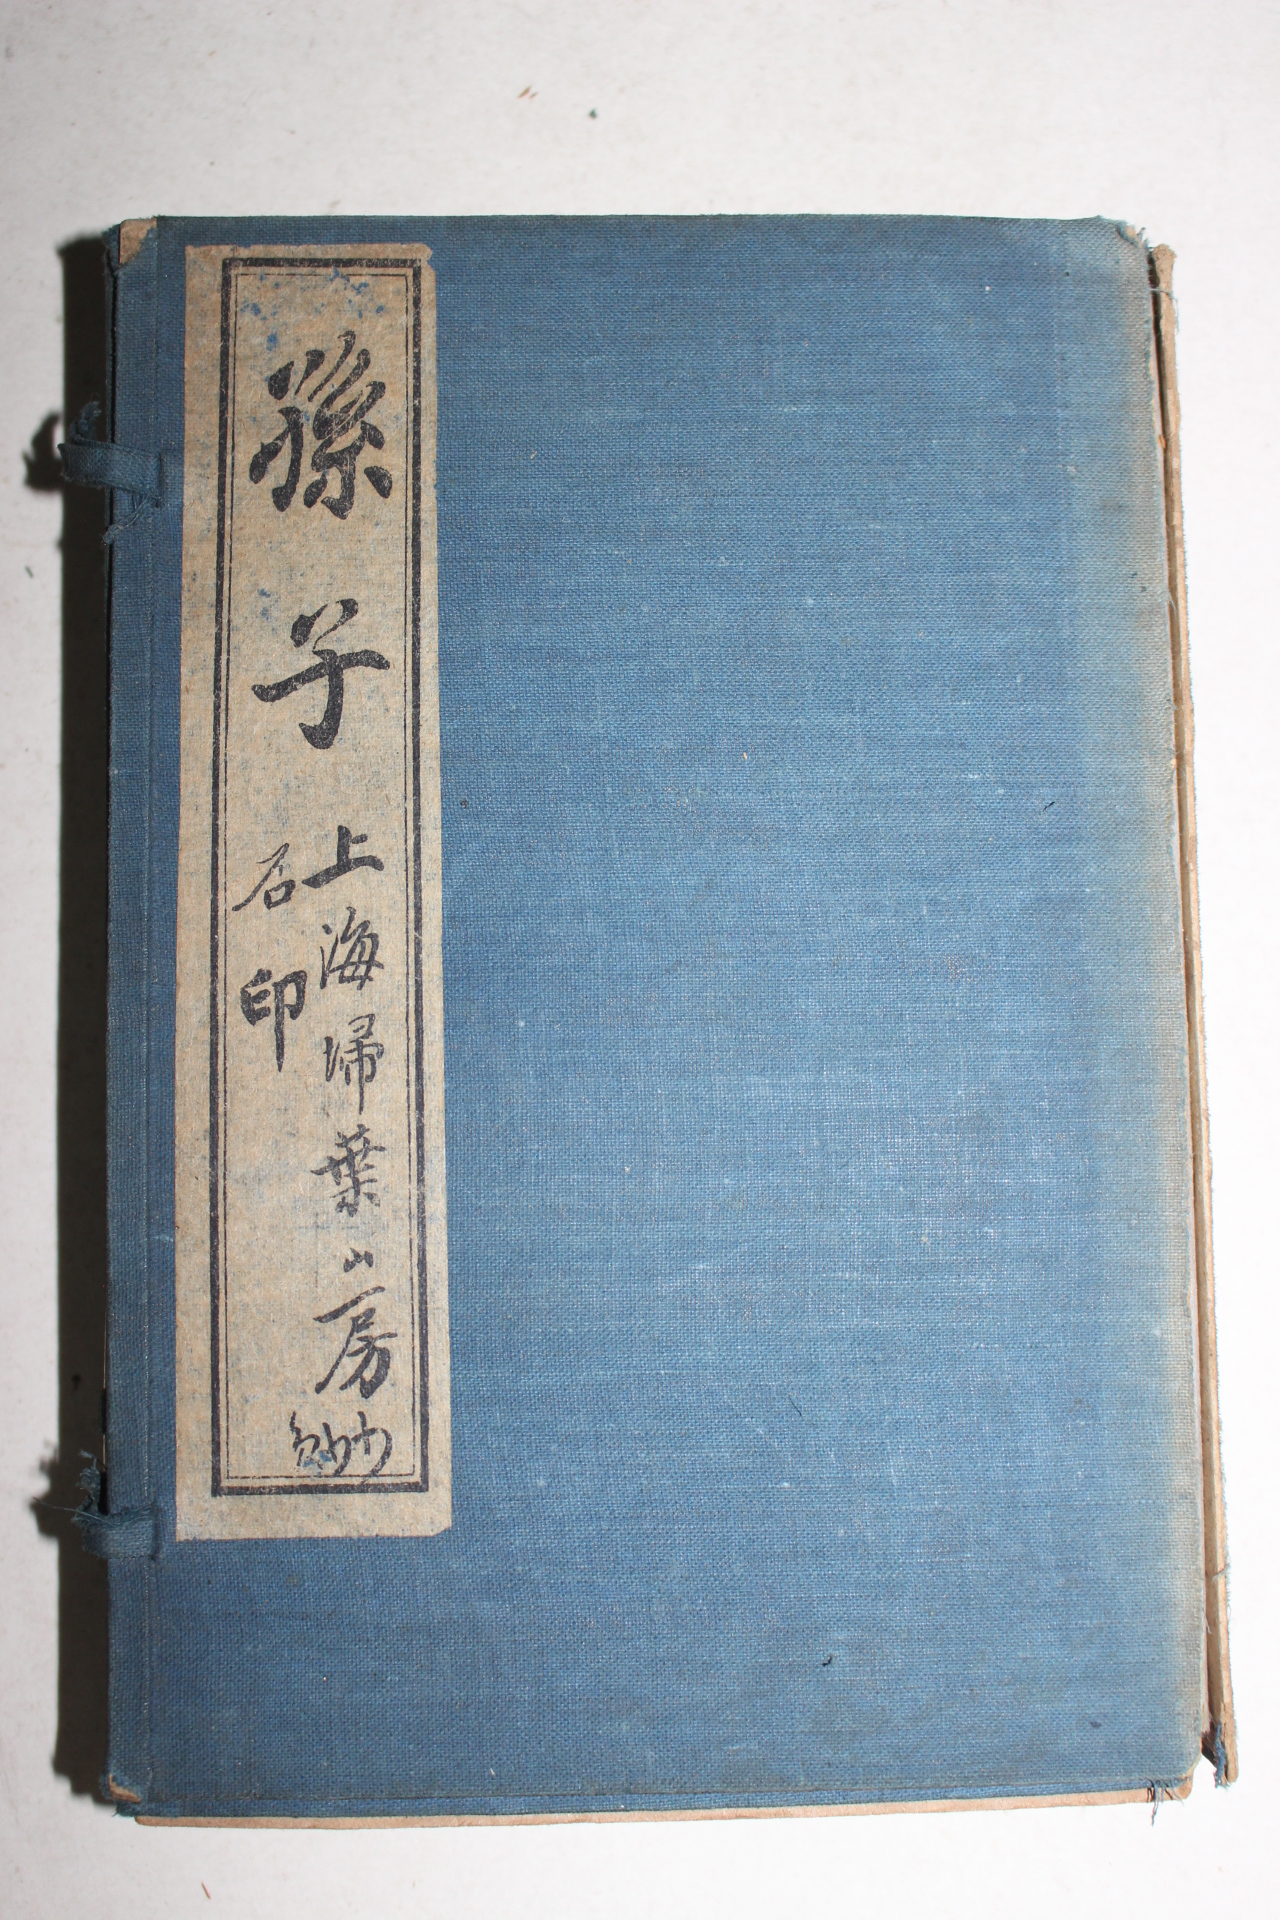 孫子
上海埽葉山房
石印